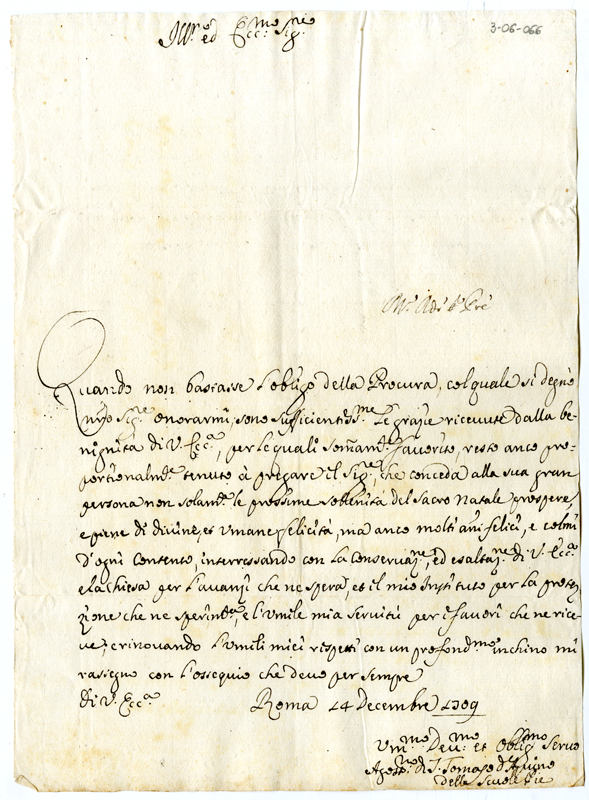 Ill.mo ed Ecc.mo Sig.re
3-06-066
Quando non bastasse l'obligo della Procura, col quale si degnò
N'ro Sig.re onorarmi, sono sufficientiss.me le grazie ricevute dalla be-
nignità di V. Ecc.a, per le quali som̃am.te favorito, resto anco pro-
portionalm.te tenuto à pregare il Sig.re, che conceda alla sua gran
persona non solam.te le prossime sollennità del Sacro Natale prospere,
e piene di divine, et umane felicità, ma anco molti an̄i felici, e colmi
d'ogni contento, interessando con la conservaz.ne, ed esaltaz.ne di V. Ecc.a
e la Chiesa per l'avanzi che ne spera, et il mio Instituto per la prote-
zione che ne sperim.ta, e l'umile mia servitù per i favori che ne rice-
ve; e rinovando l'umili miei rispetti con un profond.mo inchino mi
rasegno con l'ossequio che devo per sempre
di V. Ecc.a Roma 14 Decembre 1709
Um.mo Dev.mo et Oblig.mo Servo
Agost.no di S. Tomaso d'Aquino
delle Scuole Pie